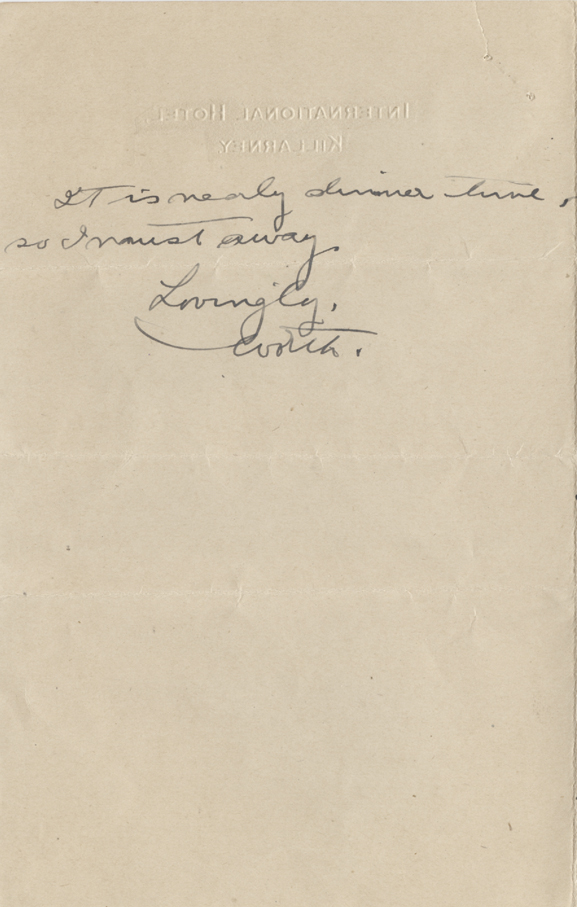 INTERNATIONAL HOTEL
KILLARNEY
It is nearly dinner time,
so I must away.
Lovingly,
Worth.